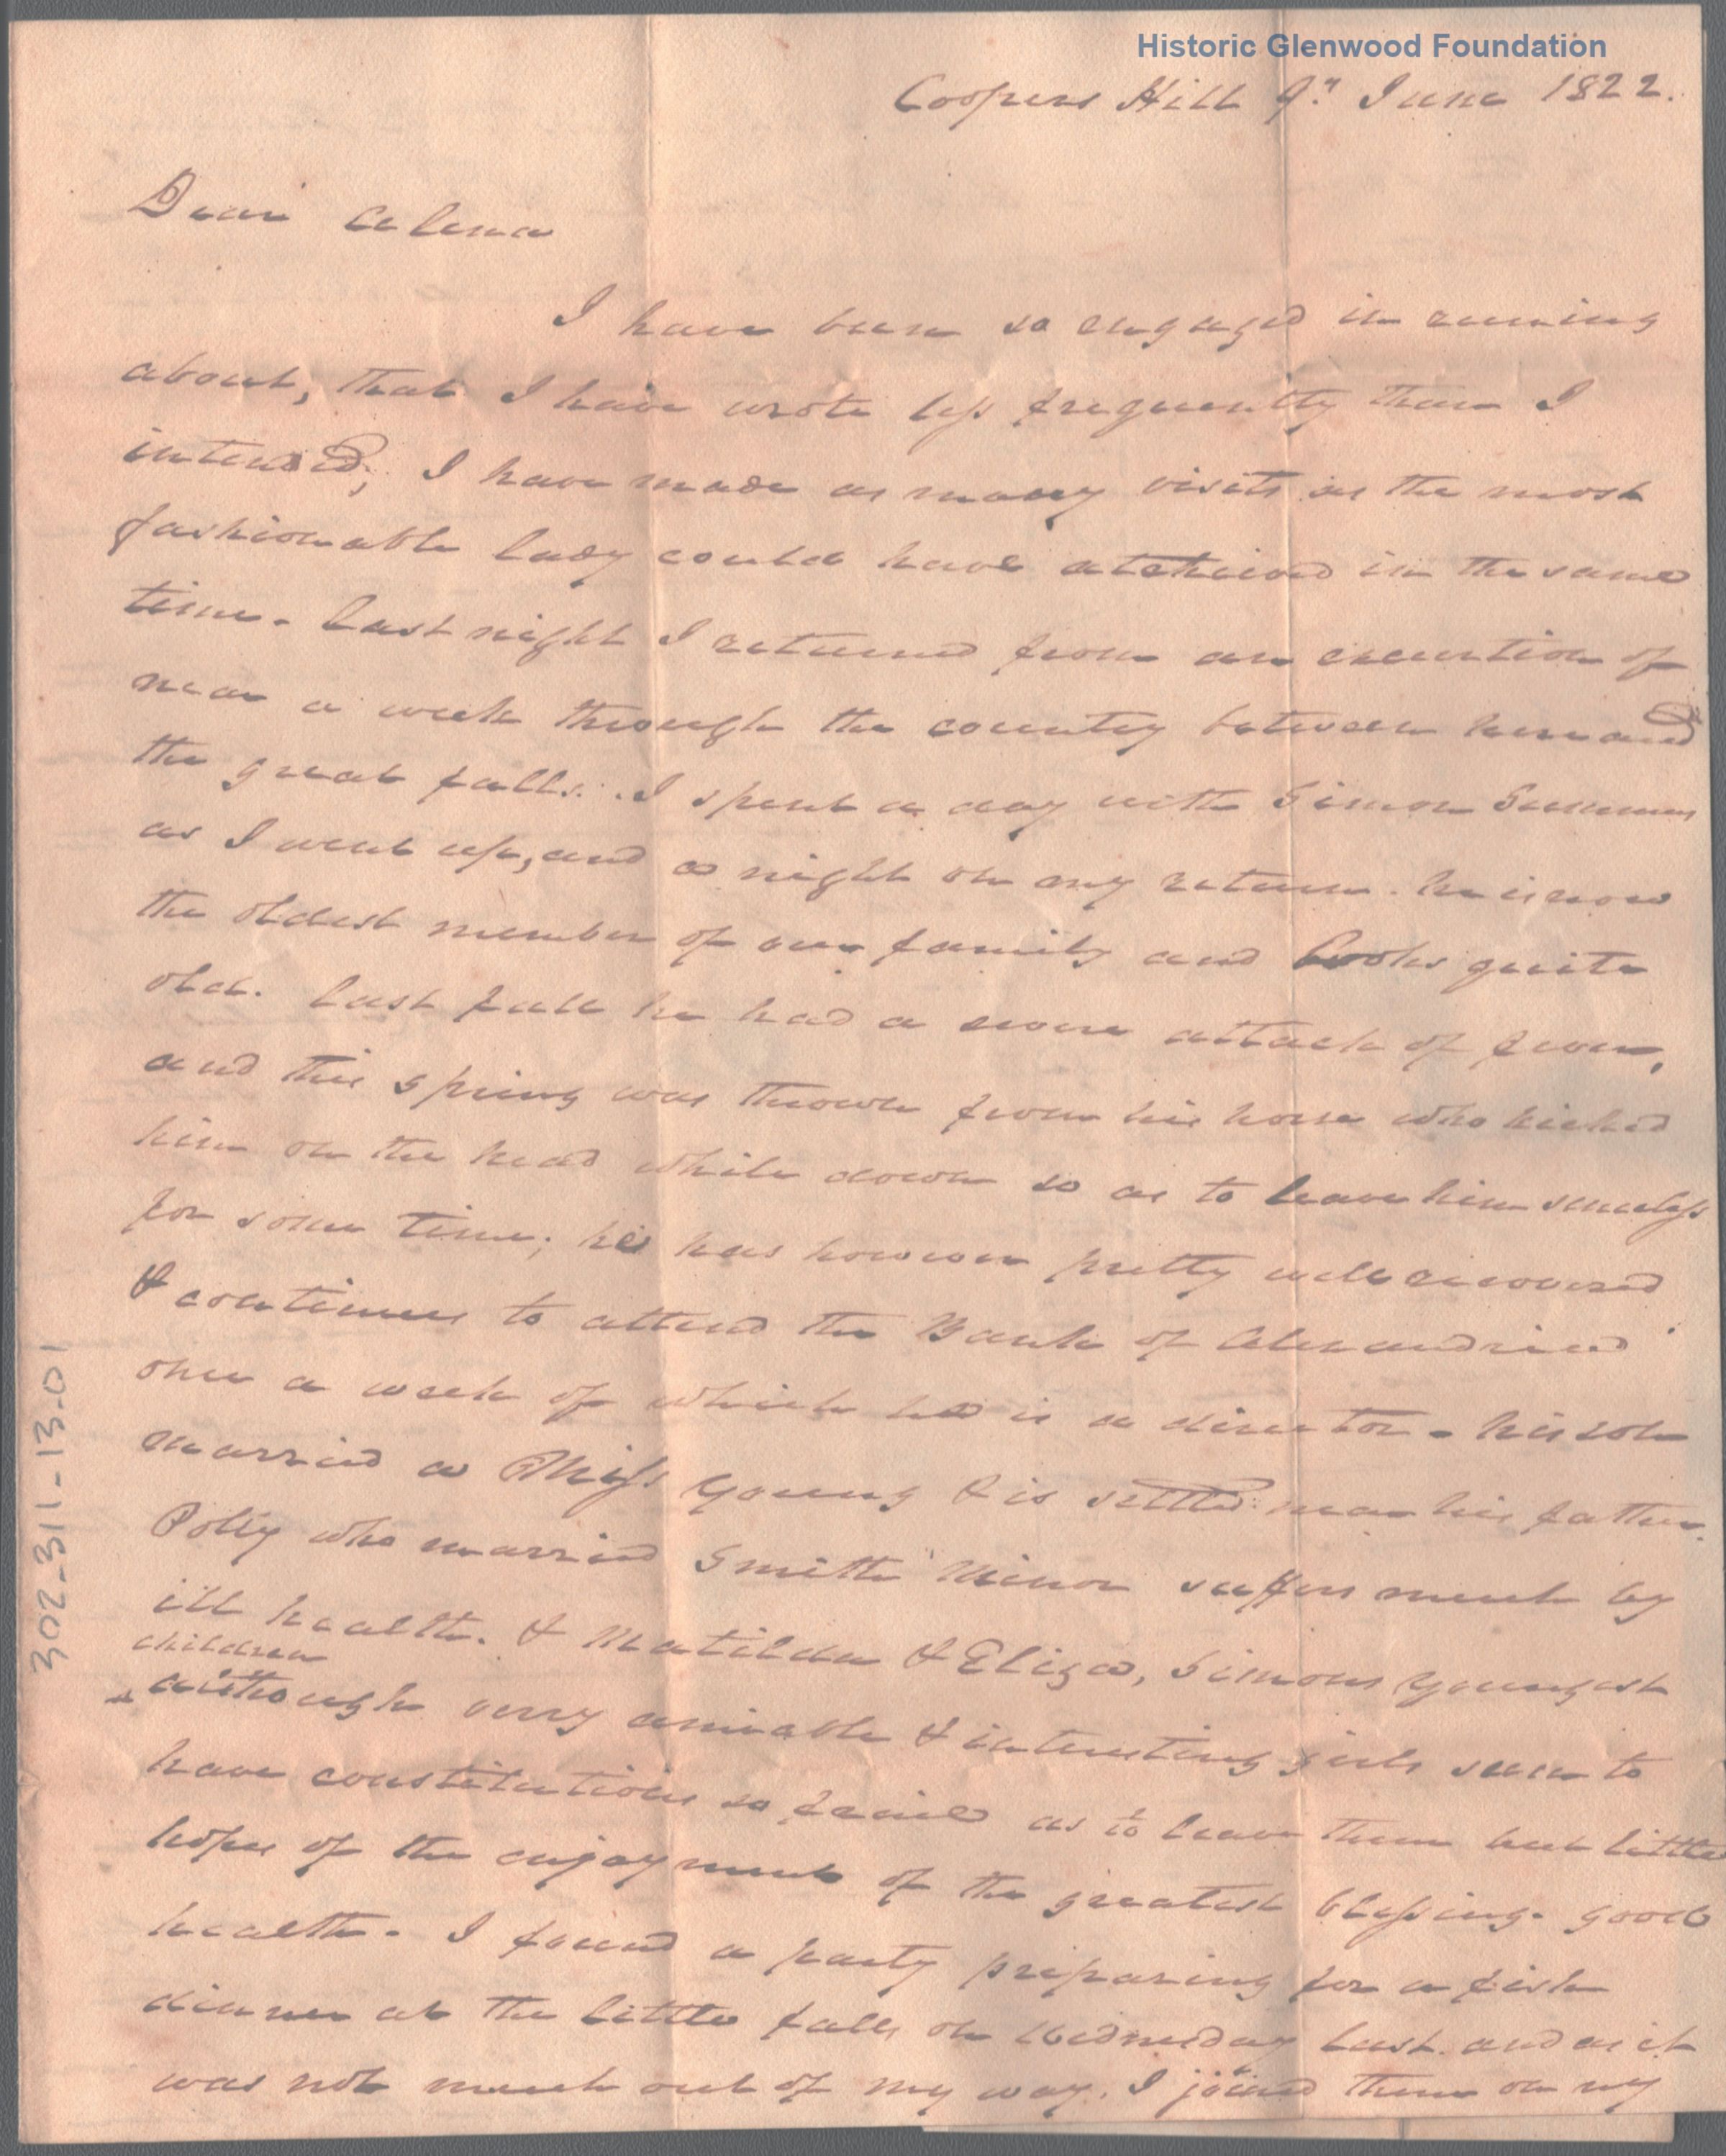 Historic Glenwood Foundation
Coopers Hill 9th June 1822.
Dear Celena
I have been so engaged in runing
about, that I have wrote less frequently than I
intended; I have made as many visits as the most
fashionable lady could have atchieved in the same
time. Last night I returned from an excurtion of
near a week through the country between here and
the great falls. I spent a day with Simon Summers
as I went up, and a night on my return. he is now
the oldest member of our family and looks quite
old. Last fall he had a severe attack of fever,
and this spring was thrown from his horse who kicked
him on the head while down so as to leave him senseless
for some time; he has however pretty well recovered
& continues to attend the Bank of Alexandria
once a week of which he is a director. his son
married a Miss Young & is settled near his father.
Polly who married Smith Minor suffers much by
ill health. & Matilda & Eliza, Simons youngest
children
although very amiable & interesting girls seem to
have constitutions so fraile as to leave them but little
hope of the enjoyment of the greatest blessing. good
health. I found a party preparing for a fish
dinner at the little falls on Wednesday last. and as it
was not much out of my way. I joined them on my
302-311-13.01